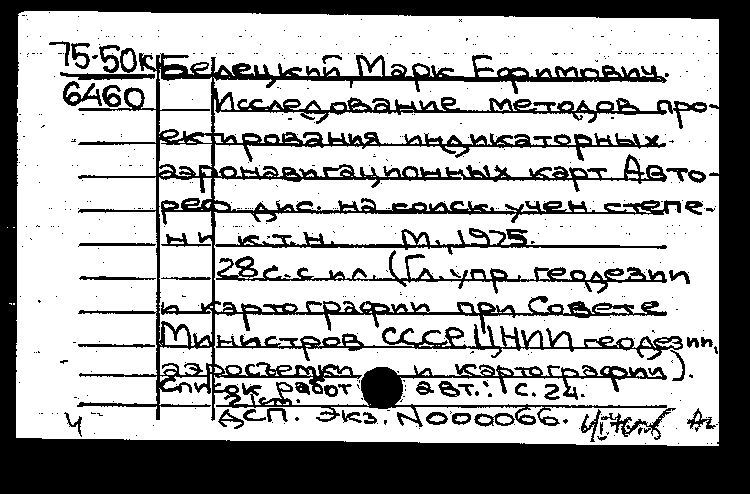 75-50к Белецкий, Марк Ефимович.
6460 Исследование методов про-
ектирования индикаторных
аэронавигационных карт Авто-
реф. дис. на соиск. учен. степе-
ни к.т.н. М., 1975.
28 с. с ил. (Гл. упр. геодезии
и картографии при Совете
Министров СССР. ЦНИИ геодезии,
аэросъемки и картографии).
Список работ авт.: с. 24.
ДСП. Экз. N000066.
Ч